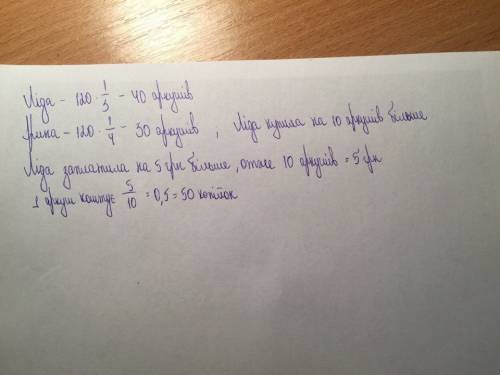 Ліда – 120 · 1/3 – 40 аркушів
Ірина – 120 · 1/4 – 30 аркушів , Ліда купила на 10 аркушів більше
Ліда заплатила на 5 грн більше, отже 10 аркушів = 5 грн
1 аркуш коштує 5/10 = 0,5 = 50 копійок